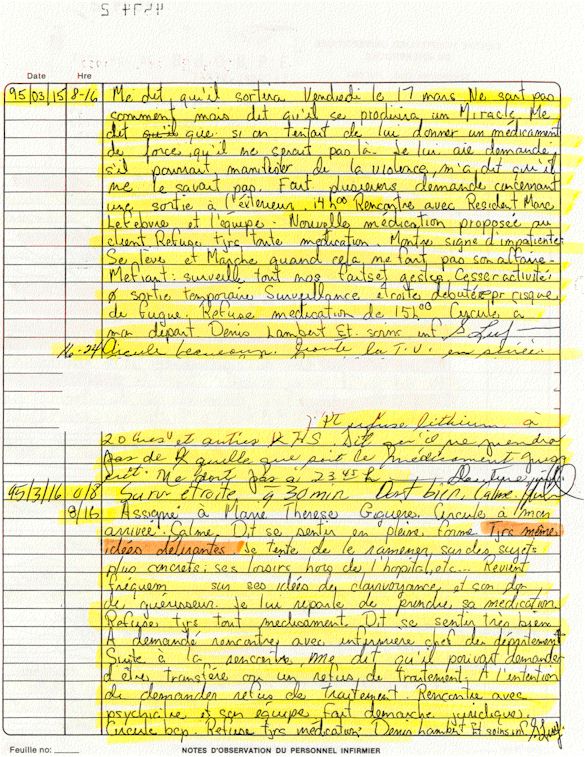 Date Hre
95/03/15 8-16 Me dit qu'il sortira Vendredi le 17 mars Ne sait pas
comment mais dit qu'il se produira un Miracle. Me
dit qu'il que si on tentait de lui donner un médicament
de force, qu'il ne serait pas là. Je lui ai demandé
s'il pourrait manifester de la violence, m'a dit qu'il
ne le savait pas. Fait plusieurs demande concernant
une sortie à l'extérieur. 14h00 Rencontre avec Resident Marc
Lefebvre et l'équipe. Nouvelle médication proposée au
client. Refuse tjrs toute médication. Montre signe d'impatience
Se lève et Marche quand cela ne fait pas son affaire.
Méfiant: surveille tout nos faits et gestes. Cesser activité
ø sortie temporaire Surveillance étroite débutée pr risque
de fugue. Refuse médication de 15h00 Circule à
mon départ. Denis Lambert Et. soins inf
16-24 Circule beaucoup. Écoute la T.V. en soirée.
refuse lithium à
20 hres et autres
pas de quelle que soit le médicament
Ne dort pas à 23 45 h
95/3/16 0/8 Surv. étroite, q 30 min. Dort bien. Calme.
8/16 Assigné à Marie Thérèse Giguère. Circule à mon
arrivée. Calme. Dit se sentir en pleine forme Tjrs même
idées délirantes. Je tente de le ramener sur des sujets
plus concrets: ses loisirs hors de l'hopital, etc... Revient
fréquem sur ses idées de clairvoyance, et son don
de guérisseur. Je lui reparle de prendre sa médication.
Refuse tjrs tout médicament. Dit se sentir très bien
A demandé rencontre avec infirmière chef du département
Suite à la rencontre, me dit qu'il pouvait demander
d'être transféré ou un refus de traitement. A l'intention
de demander refus de traitement. Rencontre avec
psychiatre et son équipe. Fait démarche juridique.
Circule bcp. Refuse tjrs médication. Denis Lambert Et soins inf
Feuille no: NOTES D'OBSERVATION DU PERSONNEL INFIRMIER